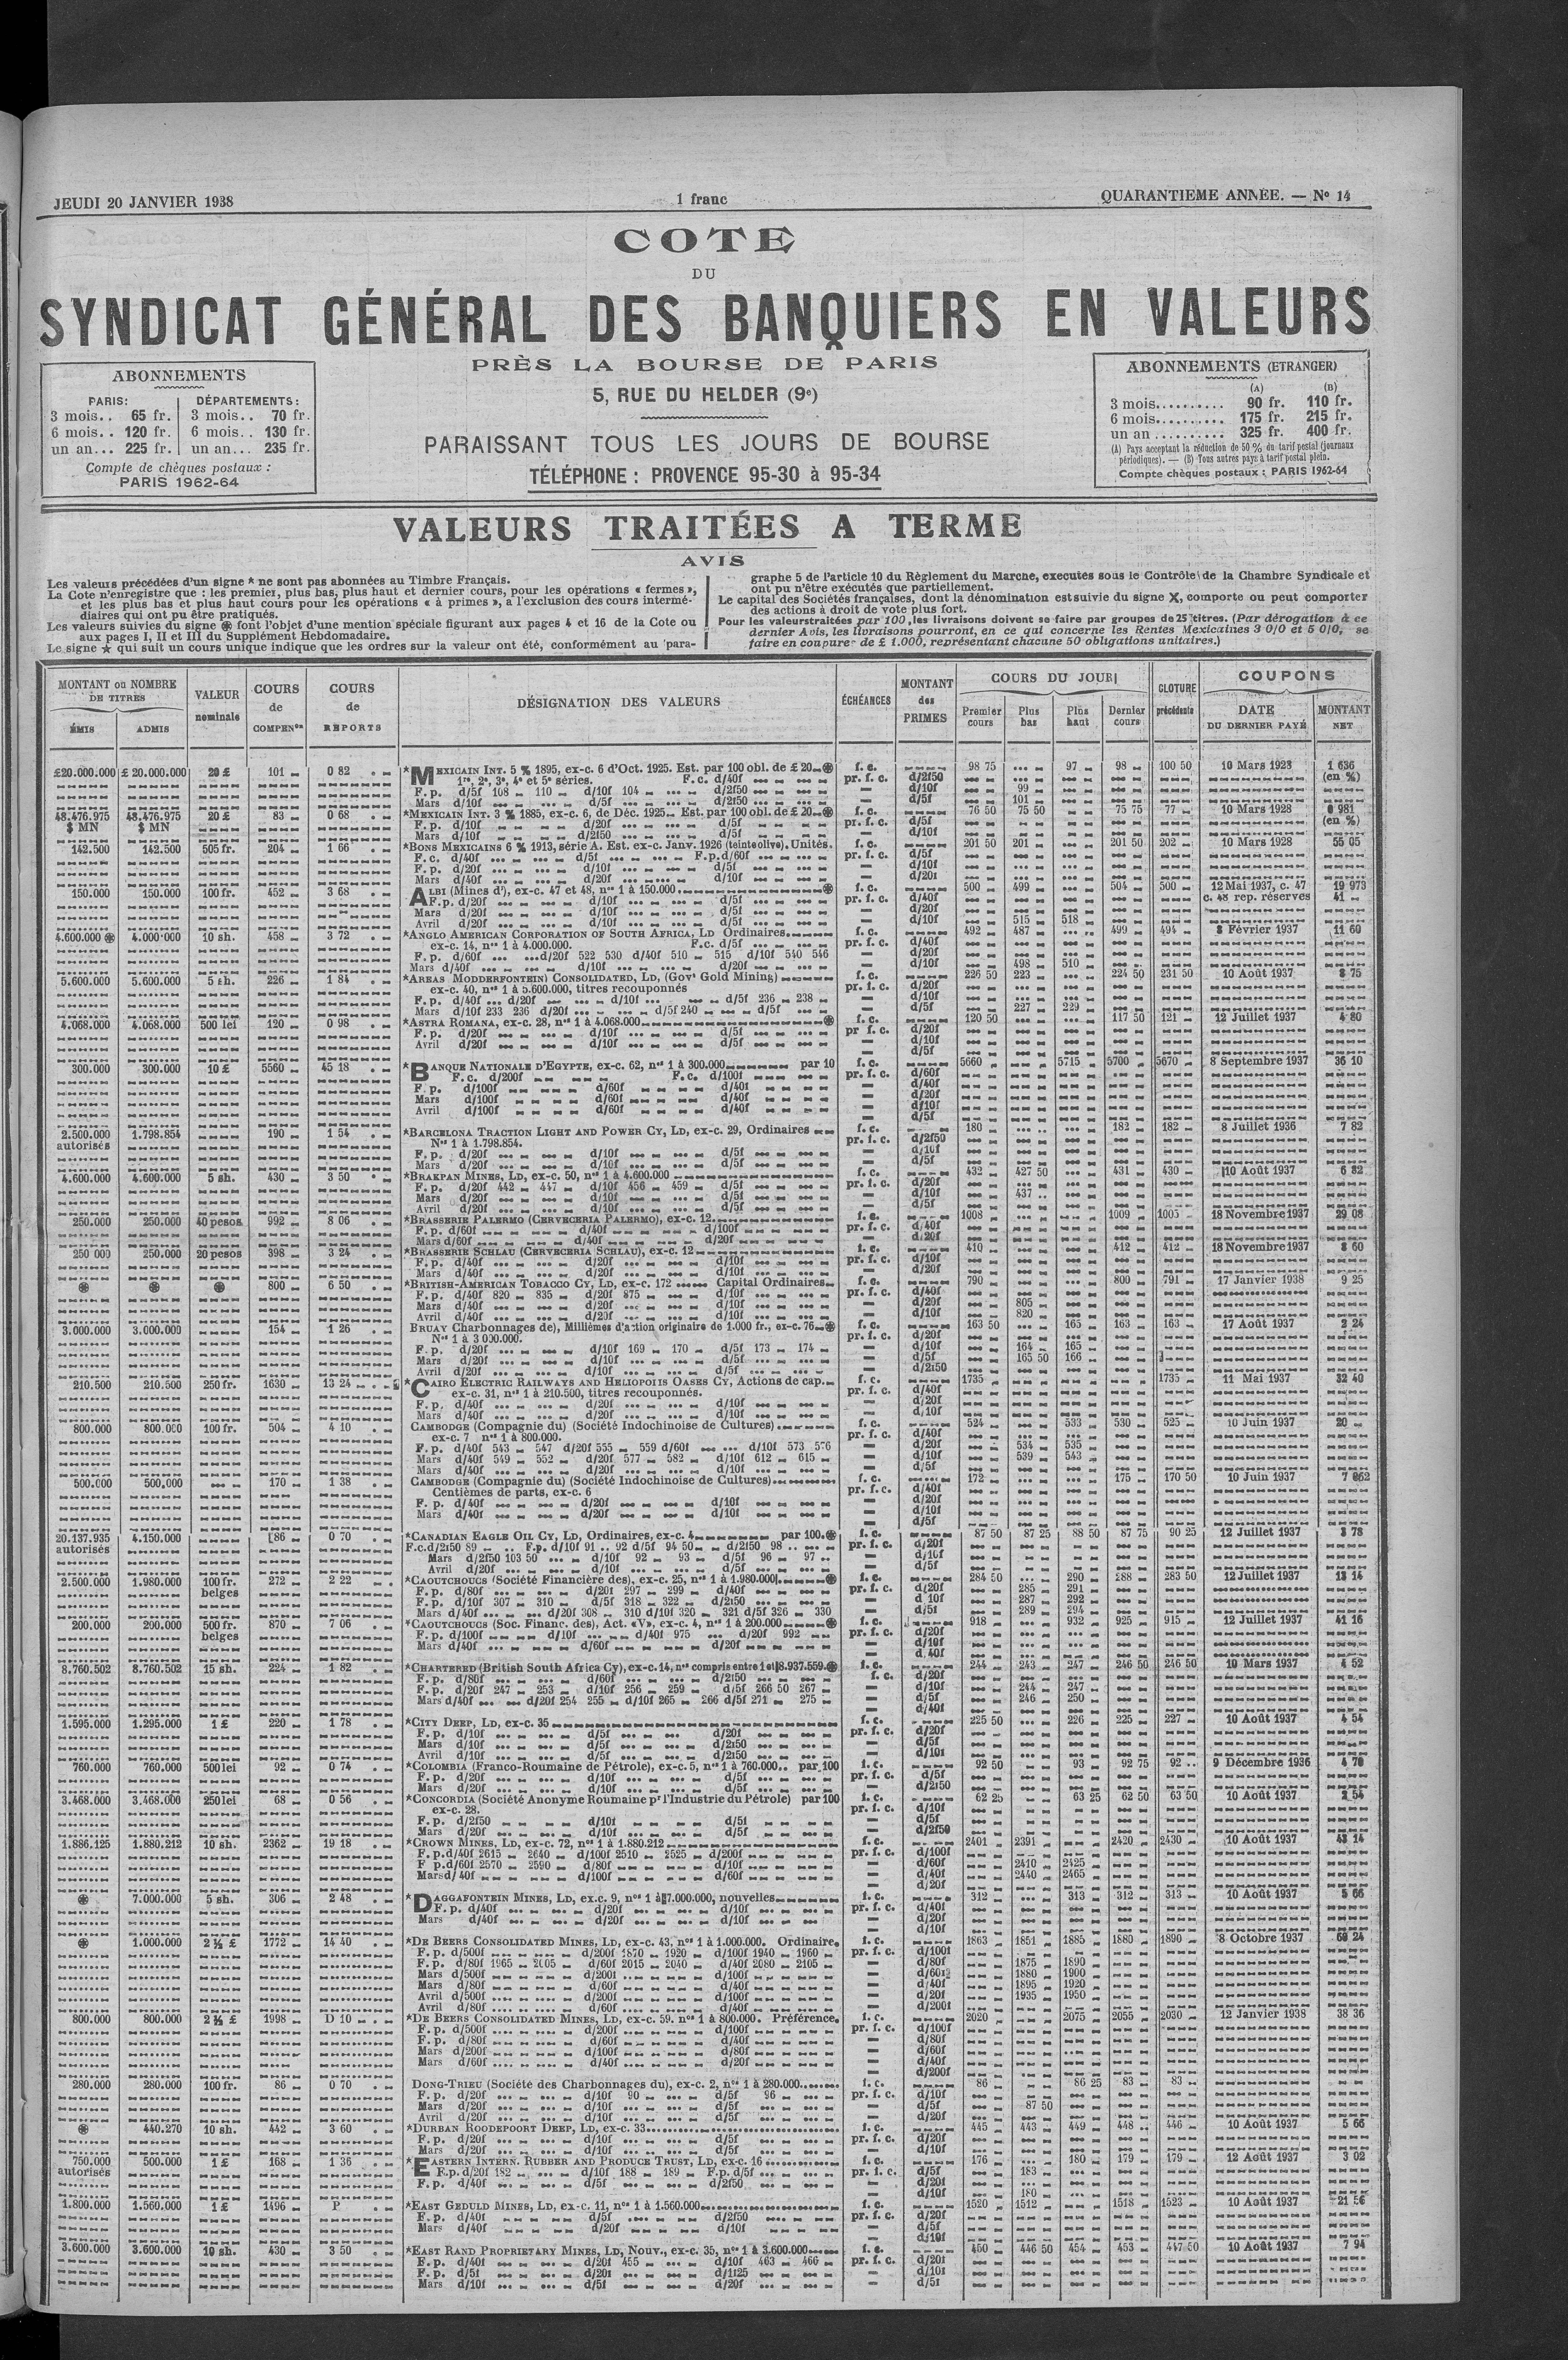 JEUDI 20 JANVIER 1938 1 franc QUARANTIEME ANNÉE. — No 14
COTE
DU
SYNDICAT GÉNÉRAL DES BANQUIERS EN VALEURS
PRÈS LA BOURSE DE PARIS
5, RUE DU HELDER (9e)
PARAISSANT TOUS LES JOURS DE BOURSE
TÉLÉPHONE : PROVENCE 95-30 à 95-34
ABONNEMENTS
PARIS: DÉPARTEMENTS:
3 mois.. 65 fr. 3 mois.. 70 fr.
6 mois.. 120 fr. 6 mois.. 130 fr.
un an... 225 fr. un an... 235 fr.
Compte de chèques postaux :
PARIS 1962-64
ABONNEMENTS (ETRANGER)
(A) (B)
3 mois.......... 90 fr. 110 fr.
6 mois.......... 175 fr. 215 fr.
un an .......... 325 fr. 400 fr.
(A) Pays acceptant la réduction de 50 % du tarif postal (journaux
périodiques). — (B) Tous autres pays à tarif postal plein.
Compte chèques postaux : PARIS 1962-64
VALEURS TRAITÉES A TERME
AVIS
Les valeurs précédées d'un signe * ne sont pas abonnées au Timbre Français.
La Cote n'enregistre que : les premier, plus bas, plus haut et dernier cours, pour les opérations « fermes »,
et les plus bas et plus haut cours pour les opérations « à primes », a l'exclusion des cours intermé-
diaires qui ont pu être pratiqués.
Les valeurs suivies du signe ⊛ font l'objet d'une mention spéciale figurant aux pages 4 et 16 de la Cote ou
aux pages I, II et III du Supplément Hebdomadaire.
Le signe ★ qui suit un cours unique indique que les ordres sur la valeur ont été, conformément au para-
graphe 5 de l'article 10 du Règlement du Marche, executes sous le Contrôle de la Chambre Syndicale et
ont pu n'être exécutés que partiellement.
Le capital des Sociétés françaises, dont la dénomination est suivie du signe X, comporte ou peut comporter
des actions à droit de vote plus fort.
Pour les valeurs traitées par 100, les livraisons doivent se faire par groupes de 25 titres. (Par dérogation à ce
dernier Avis, les livraisons pourront, en ce qui concerne les Rentes Mexicaines 3 0/0 et 5 0/0, se
faire en coupures de £ 1.000, représentant chacune 50 obligations unitaires.)
MONTANT ou NOMBRE DE TITRES VALEUR nominale COURS de COMPENon COURS de REPORTS DÉSIGNATION DES VALEURS ÉCHÉANCES MONTANT des PRIMES COURS DU JOUR CLOTURE précédente COUPONS
ÉMIS ADMIS Premier cours Plus bas Plus haut Dernier cours DATE DU DERNIER PAYÉ MONTANT NET
£20.000.000 £ 20.000.000 20 £ 101 0 82 *MEXICAIN INT. 5 % 1895, ex-c. 6 d'Oct. 1925. Est. par 100 obl. de £ 20 ⊛ f. c. 98 75 97 98 100 50 10 Mars 1923 1 636
1re, 2e, 3e, 4e et 5e séries. F.c. d/40f pr. f. c. d/2f50 (en %)
F. p. d/5f 108 110 d/10f 104 d/2f50 d/10f 99
Mars d/10f d/5f d/2f50 d/5f 101
48.476.975 48.476.975 20 £ 83 0 68 *MEXICAIN INT. 3 % 1885, ex-c. 6, de Déc. 1925 Est. par 100 obl. de £ 20 ⊛ f. c. 76 50 75 50 75 75 77 10 Mars 1928 0 981
$ MN $ MN F. p. d/10f d/20f d/5f pr. f. c. d/5f (en %)
Mars d/10f d/2f50 d/5f d/10f
142.500 142.500 505 fr. 204 1 66 *BONS MEXICAINS 6 % 1913, série A. Est. ex-c. Janv. 1926 (teinte olive). Unités. f. c. 201 50 201 201 50 202 10 Mars 1928 55 05
F. c. d/40f d/5f F.p.d/60f pr. f. c. d/5f
F. p. d/20f d/10f d/5f d/10f
Mars d/40f d/20f d/10f d/20f
150.000 150.000 100 fr. 452 3 68 ALBI (Mines d'), ex-c. 47 et 48, nos 1 à 150.000 ⊛ f. c. 500 499 504 500 12 Mai 1937, c. 47 19 973
F.p. d/20f d/10f d/5f pr. f. c. d/40f c. 48 rep. réserves 41
Mars d/20f d/10f d/5f d/20f
Avril d/20f d/10f d/5f d/10f 515 518
4.600.000 ⊛ 4.000.000 10 sh. 458 3 72 *ANGLO AMERICAN CORPORATION OF SOUTH AFRICA, LD Ordinaires f. c. 492 487 499 494 8 Février 1937 11 60
ex-c. 14, nos 1 à 4.000.000. F.c. d/5f pr. f. c. d/40f
F. p. d/60f d/20f 522 530 d/40f 510 515 d/10f 540 546 d/20f
Mars d/40f d/10f d/20f d/10f 498 510
5.600.000 5.600.000 5 sh. 226 1 84 *AREAS MODDERFONTEIN) CONSOLIDATED, LD, (Govt Gold Mining) f. c. 226 50 223 224 50 231 50 10 Août 1937 8 75
ex-c. 40, nos 1 à 5.600.000, titres recouponnés pr. f. c. d/20f
F. p. d/40f d/20f d/10f d/5f 236 238 d/10f
Mars d/10f 233 236 d/20f d/5f 240 d/5f d/5f 227 229
4.068.000 4.068.000 500 lei 120 0 98 *ASTRA ROMANA, ex-c. 28, nos 1 à 4.068.000 ⊛ f. c. 120 50 117 50 121 12 Juillet 1937 4 80
F. p. d/20f d/10f d/5f pr f. c. d/20f
Avril d/20f d/10f d/5f d/10f
d/5f
300.000 300.000 10 £ 5560 45 18 *BANQUE NATIONALE D'EGYPTE, ex-c. 62, nos 1 à 300.000 par 10 f. c. 5660 5715 5700 5670 8 Septembre 1937 36 10
F. c. d/200f F.c. d/100f pr. f. c. d/60f
F. p. d/100f d/60f d/40f d/40f
Mars d/100f d/60f d/40f d/20f
Avril d/100f d/60f d/40f d/10f
d/5f
2.500.000 1.798.854 190 1 54 *BARCELONA TRACTION LIGHT AND POWER CY, LD, ex-c. 29, Ordinaires f. c. 180 182 182 8 Juillet 1936 7 82
autorisés Nos 1 à 1.798.854. pr. f. c. d/2f50
F. p. d/20f d/10f d/5f d/10f
Mars d/20f d/10f d/5f d/5f
4.600.000 4.600.000 5 sh. 430 3 50 *BRAKPAN MINES, LD, ex-c. 50, nos 1 à 4.600.000 f. c. 432 427 50 431 430 10 Août 1937 6 82
F. p. d/20f 442 447 d/10f 456 459 d/5f pr. f. c. d/20f
Mars d/20f d/10f d/5f d/10f 437
Avril d/20f d/10f d/5f d/5f
250.000 250.000 40 pesos 992 8 06 *BRASSERIE PALERMO (CERVECERIA PALERMO), ex-c. 12 f. c. 1008 1009 1005 18 Novembre 1937 29 08
F. p. d/60f d/40f d/100f pr. f. c. d/40f
Mars d/60f d/40f d/20f d/20f
250 000 250.000 20 pesos 398 3 24 *BRASSERIE SCHLAU (CERVECERIA SCHLAU), ex-c. 12 f. c. 410 412 412 18 Novembre 1937 8 60
F. p. d/40f d/20f d/10f pr. f. c. d/10f
Mars d/40f d/20f d/10f d/20f
⊛ ⊛ ⊛ 800 6 50 *BRITISH-AMERICAN TOBACCO CY, LD, ex-c. 172 Capital Ordinaires f. c. 790 800 791 17 Janvier 1938 9 25
F. p. d/40f 820 835 d/20f 875 d/10f pr. f. c. d/40f
Mars d/40f d/20f d/10f d/20f 805
Avril d/40f d/20f d/10f d/10f 820
3.000.000 3.000.000 154 1 26 BRUAY Charbonnages de), Millièmes d'action originaire de 1.000 fr., ex-c. 76 ⊛ f. c. 163 50 165 163 163 17 Août 1937 2 24
Nos 1 à 3 000.000. pr. f. c. d/20f
F. p. d/20f d/10f 169 170 d/5f 173 174 d/10f 164 165
Mars d/20f d/10f d/5f d/5f 165 50 166
Avril d/20f d/10f d/5f d/2f50
210.500 210.500 250 fr. 1630 13 24 *CAIRO ELECTRIC RAILWAYS AND HELIOPOLIS OASES CY, Actions de cap. f. c. 1735 1735 11 Mai 1937 32 40
ex-c. 31, nos 1 à 210.500, titres recouponnés. pr. f. c. d/40f
F. p. d/40f d/20f d/10f d/20f
Mars d/40f d/20f d/10f d/10f
800.000 800.000 100 fr. 504 4 10 CAMBODGE (Compagnie du) (Société Indochinoise de Cultures) f. c. 524 533 530 525 10 Juin 1937 20
ex-c. 7 nos 1 à 800.000. pr. f. c. d/40f
F. p. d/40f 543 547 d/20f 555 559 d/60f d/10f 573 576 d/20f 534 535
Mars d/40f 549 552 d/20f 577 582 d/10f 612 615 d/10f 539 543
Mars d/40f d/20f d/10f d/5f
500.000 500.000 170 1 38 CAMBODGE (Compagnie du) (Société Indochinoise de Cultures) f. c. 172 175 170 50 10 Juin 1937 7 862
Centièmes de parts, ex-c. 6 pr. f. c. d/40f
F. p. d/40f d/20f d/10f d/20f
Mars d/40f d/20f d/10f d/10f
d/5f
20.137.935 4.150.000 86 0 70 *CANADIAN EAGLE OIL CY, LD, Ordinaires, ex-c. 4 par 100 ⊛ f. c. 87 50 87 25 88 50 87 75 90 25 12 Juillet 1937 3 78
autorisés F.c.d/2f50 89 F.p. d/10f 91 92 d/5f 94 50 d/2f50 98 pr. f. c. d/20f
Mars d/2f50 103 50 d/10f 92 93 d/5f 96 97 d/10f
Avril d/20f d/10f d/5f d/5f
2.500.000 1.980.000 100 fr. 272 2 22 *CAOUTCHOUCS (Société Financière des), ex-c. 25, nos 1 à 1.980.000 ⊛ f. c. 284 50 290 288 283 50 12 Juillet 1937 13 14
belges F. p. d/80f d/20f 297 299 d/40f pr. f. c. d/20f 285 291
F. p. d/10f 307 310 d/5f 318 322 d/2f50 d 10f 287 292
Mars d/40f d/20f 308 310 d/10f 320 321 d/5f 326 330 d/5f 289 294
200.000 200.000 500 fr. 870 7 06 *CAOUTCHOUCS (Soc. Financ. des), Act. «V», ex-c. 4, nos 1 à 200.000 ⊛ f. c. 918 932 925 915 12 Juillet 1937 41 16
belges F. p. d/100f d/10f d/40f 975 d/20f 992 pr. f. c. d/20f
Mars d/40f d/60f d/20f d/10f
d.40f
8.760.502 8.760.502 15 sh. 224 1 82 *CHARTERED (British South Africa Cy), ex-c. 14, nos compris entre 1 et 8.937.559 ⊛ f. c. 244 243 247 246 50 246 50 10 Mars 1937 4 52
F. p. d/80f d/60f d/2f50 f. c. d/20f
F. p. d/20f 247 253 d/10f 256 259 d/5f 266 50 267 d/10f 244 247
Mars d/40f d/20f 254 255 d/10f 265 266 d/5f 271 275 d/5f 246 250
d/40f
1.595.000 1.295.000 1 £ 220 1 78 *CITY DEEP, LD, ex-c. 35 f. c. 225 50 226 225 227 10 Août 1937 4 54
F. p. d/10f d/5f d/20f pr. f. c. d/20f
Mars d/10f d/5f d/2f50 d/5f
Avril d/10f d/5f d/2f50 d/10f
760.000 760.000 500 lei 92 0 74 *COLOMBIA (Franco-Roumaine de Pétrole), ex-c. 5, nos 1 à 760.000 par 100 f. c. 92 50 93 92 75 92 9 Décembre 1936 4 78
F. p. d/20f d/10f d/5f pr. f. c. d/5f
Mars d/20f d/10f d/5f d/2f50
3.468.000 3.468.000 250 lei 68 0 56 *CONCORDIA (Société Anonyme Roumaine pr l'Industrie du Pétrole) par 100 f. c. 62 25 63 25 62 50 63 50 10 Août 1937 2 54
ex-c. 28. pr. f. c. d/10f
F. p. d/2f50 d/10f d/5f d/5f
Mars d/20f d/10f d/5f d/2f50
1.886.125 1.880.212 10 sh. 2362 19 18 *CROWN MINES, LD, ex-c. 72, nos 1 à 1.880.212 f. c. 2401 2391 2420 2430 10 Août 1937 43 14
F. p.d/40f 2615 2640 d/100f 2510 2525 d/200f pr. f. c. d/100f
F p.d/60f 2570 2590 d/80f d/10f d/60f 2410 2425
Mars d/40f d/100f d/60f d/40f 2440 2465
d/20f
⊛ 7.000.000 5 sh. 306 2 48 *DAGGAFONTEIN MINES, LD, ex.c. 9, nos 1 à 7.000.000, nouvelles f. c. 312 313 312 313 10 Août 1937 5 66
F. p. d/40f d/20f d/10f pr. f. c. d/40f
Mars d/40f d/20f d/10f d/20f
d/10f
⊛ 1.000.000 2 ½ £ 1772 14 40 *DE BEERS CONSOLIDATED MINES, LD, ex-c. 43, nos 1 à 1.000.000. Ordinaire. f. c. 1863 1851 1885 1880 1890 8 Octobre 1937 68 24
F. p. d/500f d/200f 1870 1920 d/100f 1940 1960 pr. f. c. d/100f
F. p. d/80f 1965 2005 d/60f 2015 2040 d/40f 2080 2105 d/80f 1875 1890
Mars d/500f d/200f d/100f d/60f 1880 1900
Mars d/80f d/60f d/40f d/40f 1895 1920
Avril d/500f d/200f d/100f d/20f 1935 1950
Avril d/80f d/60f d/40f d/200f
800.000 800.000 2 ½ £ 1998 D 10 *DE BEERS CONSOLIDATED MINES, LD, ex-c. 59. nos 1 à 800.000. Préférence. f. c. 2020 2075 2055 2030 12 Janvier 1938 38 36
F. p. d/500f d/200f d/100f pr. f. c. d/100f
F. p. d/80f d/60f d/40f d/80f
Mars d/200f d/100f d/80f d/60f
Mars d/60f d/40f d/20f d/40f
d/200f
280.000 280.000 100 fr. 86 0 70 DONG-TRIEU (Société des Charbonnages du), ex-c. 2, nos 1 à 280.000 f. c. 86 86 25 83 83
F. p. d/20f d/10f 90 d/5f 96 pr. f. c. d/10f
Mars d/20f d/10f d/5f d/5f 87 50
Avril d/20f d/10f d/5f d/20f
⊛ 440.270 10 sh. 442 3 60 *DURBAN ROODEPOORT DEEP, LD, ex-c. 33 f. c. 445 443 449 448 446 10 Août 1937 5 66
F. p. d/20f d/10f d/5f pr. f. c. d/20f
Mars d/20f d/10f d/5f d/10f
750.000 500.000 1 £ 168 1 36 *EASTERN INTERN. RUBBER AND PRODUCE TRUST, LD, ex-c. 16 f. c. 176 180 179 179 12 Août 1937 3 02
autorisés F.p. d/20f 182 d/10f 188 189 F.p. d/5f pr. f. c. d/5f 183
F. p. d/40f d/5f d/2f50 d/20f
d/10f 180
1.800.000 1.560.000 1 £ 1496 P *EAST GEDULD MINES, LD, ex-c. 11, nos 1 à 1.560.000 f. c. 1520 1512 1518 1523 10 Août 1937 21 56
F. p. d/40f d/5f d/2f50 pr. f. c. d/20f
Mars d/40f d/20f d/10f d/5f
d/10f
3.600.000 3.600.000 10 sh. 430 3 50 *EAST RAND PROPRIETARY MINES, LD, Nouv., ex-c. 35, nos 1 à 3.600.000 f. c. 450 446 50 454 453 447 50 10 Août 1937 7 94
F. p. d/40f d/20f 455 d/10f 463 466 pr. f. c. d/20f
F. p. d/5f d/20f d/1f25 d/10f
Mars d/10f d/5f d/20f d/5f